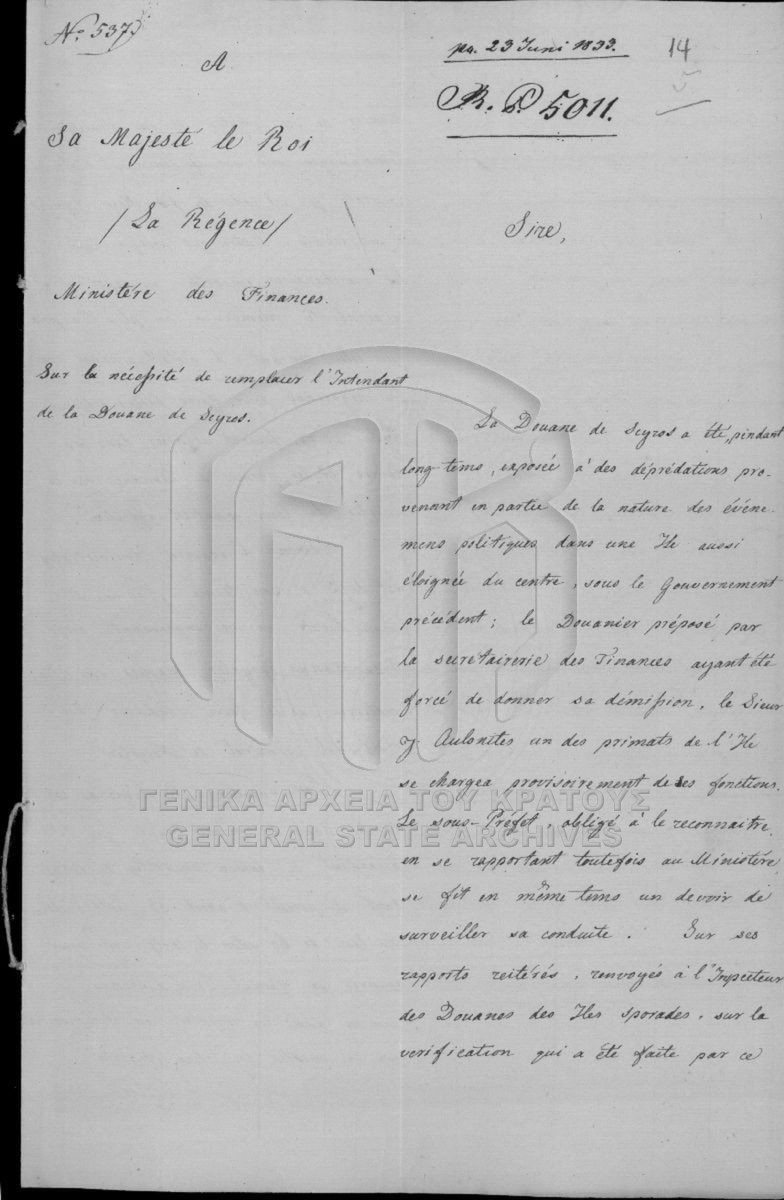 No. 5375
A
pr. 23 Juni 1833.
14
5
R. P. 5011.
Sa Majesté le Roi
/ La Régence /
Sire,
Ministére des Finances.
Sur la nécessité de remplacer l'Intendant
de la Douane de Scyros.
La Douane de Scyros a été, pendant
long-tems, exposée à des déprédations pro-
venant en partie de la nature des évène-
mens politiques dans une Ile aussi
éloignée du centre, sous le Gouvernement
précédent; le Douanier préposé par
la secrétairerie des Finances ayant été
forcé de donner sa démission, le Sieur
J Aulonites un des primats de l'Ile
se chargea provisoirement de ses fonctions.
Le sous-Préfet, obligé à le reconnaitre,
en se rapportant toutefois au Ministére,
se fit en même tems un devoir de
surveiller sa conduite. Sur ses
rapports reitérés, renvoyés à l'Inspecteur
des Douanes des Iles sporades, sur la
verification qui a été faite par ce
ΓΕΝΙΚΑ ΑΡΧΕΙΑ ΤΟΥ ΚΡΑΤΟΥΣ
GENERAL STATE ARCHIVES